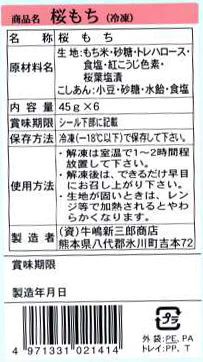 商品名 桜もち (冷凍)
名称 桜もち
原材料名 生地:もち米・砂糖・トレハロース・
食塩・紅こうじ色素・
桜葉塩漬
こしあん:小豆・砂糖・水飴・食塩
内容量 45g×6
賞味期限 シール下部に記載
保存方法 冷凍(−18℃以下)で保存して下さい。
使用方法 ・解凍は室温で1〜2時間程
放置して下さい。
・解凍後は、できるだけ早目
にお召し上がり下さい。
・生地が固いときは、レン
ジ等で加熱されるとやわ
らかくなります。
製造者 (資)牛嶋新三郎商店
熊本県八代郡氷川町吉本72
賞味期限
製造年月日
プラ
外袋:PE, PA
トレイ:PP, T
4 971331 021414